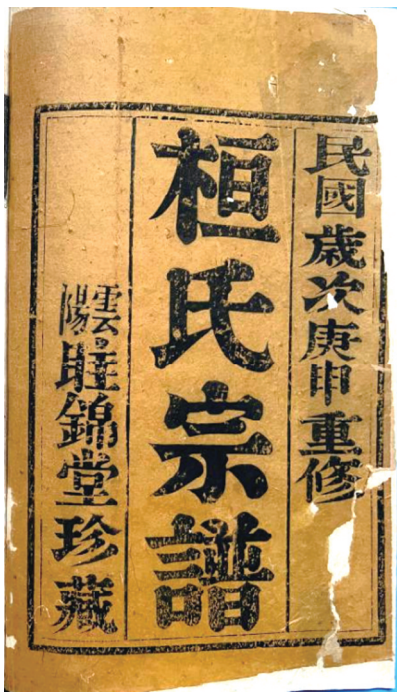 民國歲次庚申重修
桓氏宗譜
雲陽旺錦堂珍藏